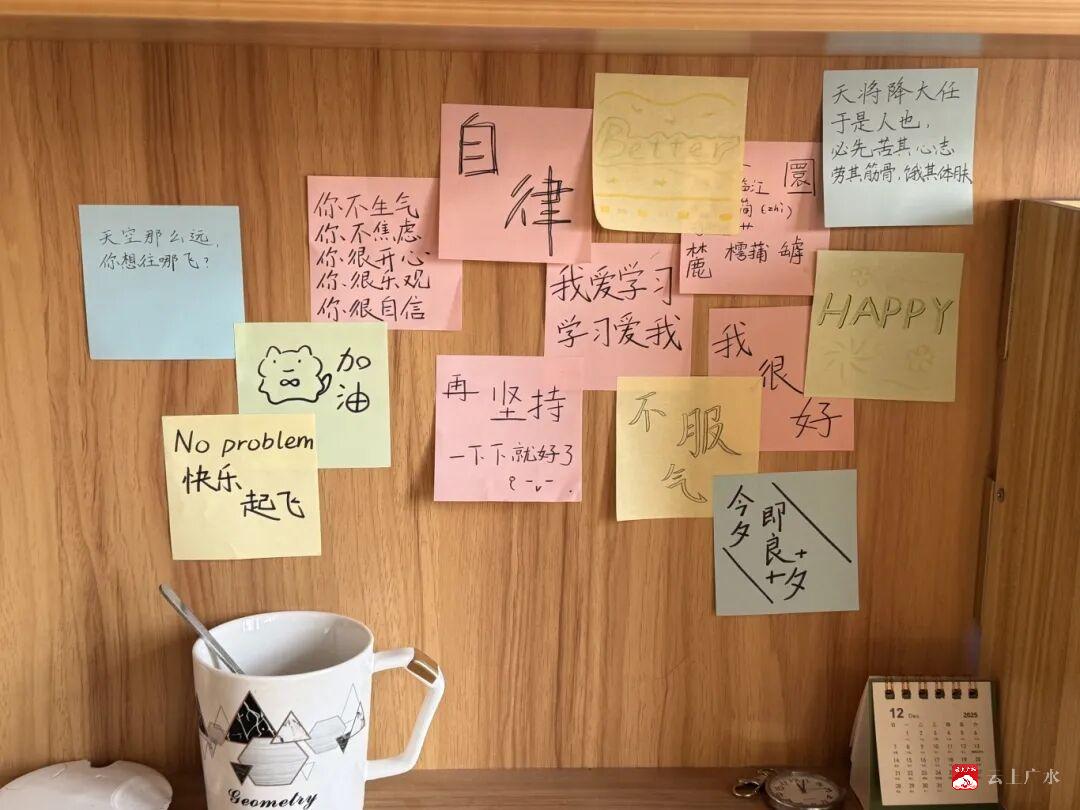 天空那么远,
你想往哪飞?
你不生气
你不焦虑
你很开心
你很乐观
你很自信
自
律
Better
圜
临江
(zhì)
麓 樗蒲 罅
天将降大任
于是人也,
必先苦其心志
劳其筋骨,饿其体肤
我爱学习
学习爱我
HAPPY
我
很
好
加
油
No problem
快乐
起飞
再 坚持
一下下就好了
不
服
气
今夕
即良夕
Geometry
12 Dec
2025
云上广水